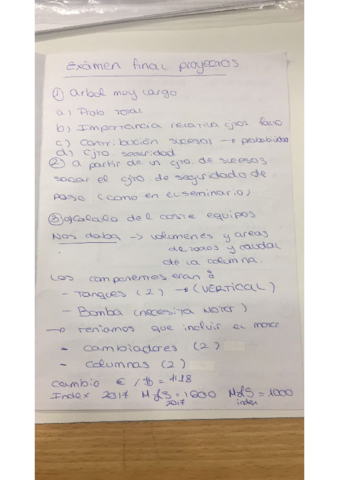 Exámen final proyectos
① Arbol muy largo
a) Prob total
b) Importancia relativa cjtos fallo
c) Contribución sucesos → probabilidad
d) Cjto seguridad
② A partir de un cjto. de sucesos
sacar el cjto de seguridad de
paso (como en el seminario)
③ Cálculo del coste equipos
Nos daba → volumenes y areas
de todos y caudal
de la columna.
Los componentes eran:
- Tanques (2) → (VERTICAL)
- Bomba (necesita MOTOR)
→ teniamos que incluir el motor
- Cambiadores (2)
- Columnas (2)
Cambio € / $ = 1'18
Index 2017 M&S = 1600 M&S = 1000
2017 index